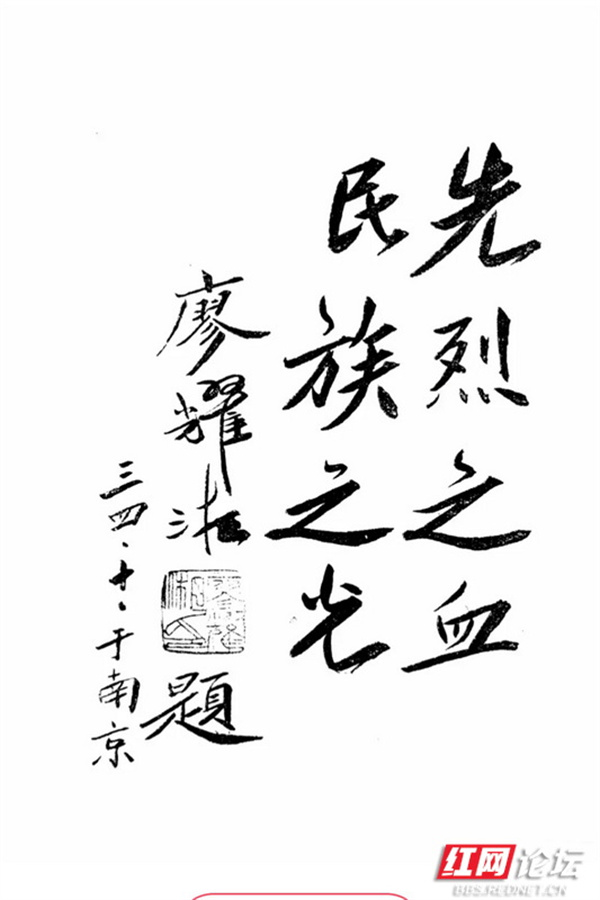 先烈之血
民族之光
廖耀湘題
三四、十、于南京
红网论坛
BBS.REDNET.CN